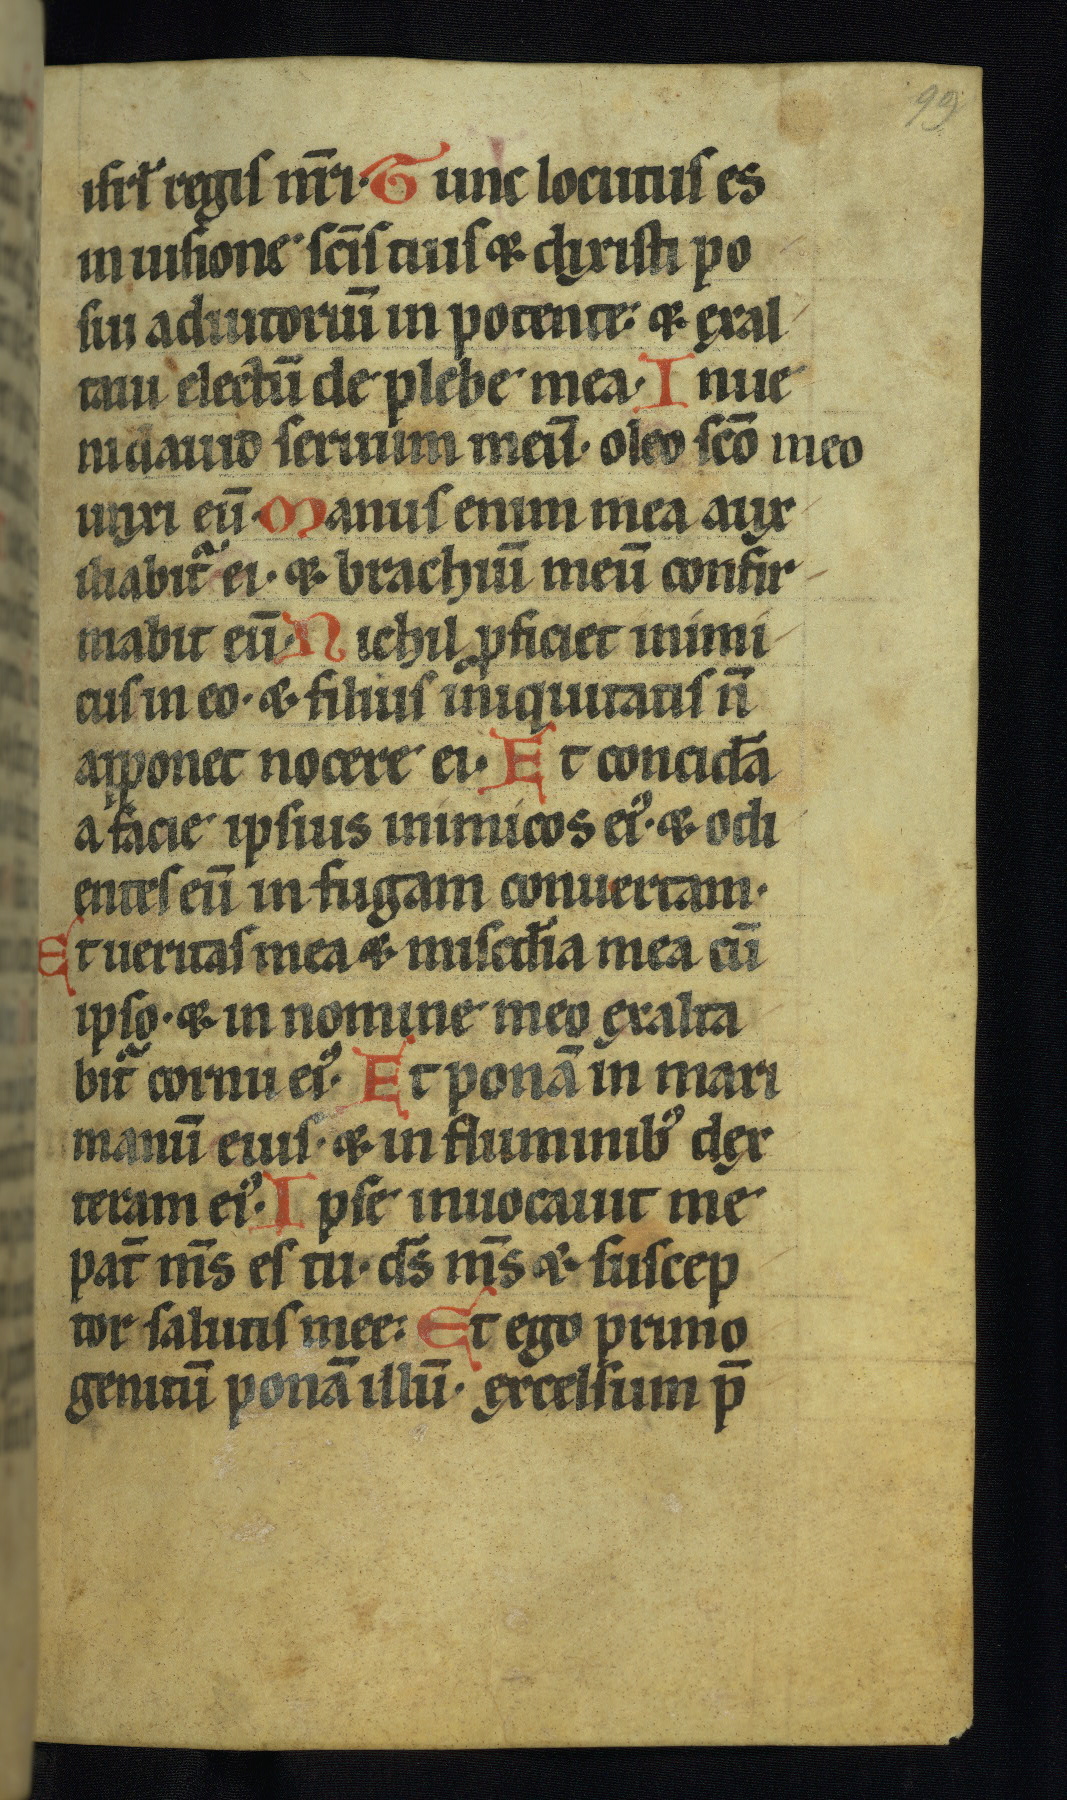 99
isrl̄ regis nr̄i. Tunc locutus es
in uisione sc̄is tuis & christi po
sui adiutoriū in potente: & exal
taui electū de plebe mea. Inue
ni dauid seruum meū. oleo sc̄o meo
unxi eū. Manus enim mea aux
iliabit᷑ ei. & brachiū meū confir
mabit eū. Nichil ꝓficiet inimi
cus in eo. & filius iniquitatis n̄
apponet nocere ei. Et concidā
a facie ipsius inimicos eiꝰ. & odi
entes eū in fugam conuertam.
Et ueritas mea & miscd̄ia mea cū
ipso. & in nomine meo exalta
bit᷑ cornu eiꝰ. Et ponā in mari
manū eius. & in fluminibꝰ dex
teram eiꝰ. Ipse inuocauit me
pat̄ m̄s es tu. ds̄ m̄s & suscep
tor salutis mee: Et ego primo
genitū ponā illū. excelsum p̄